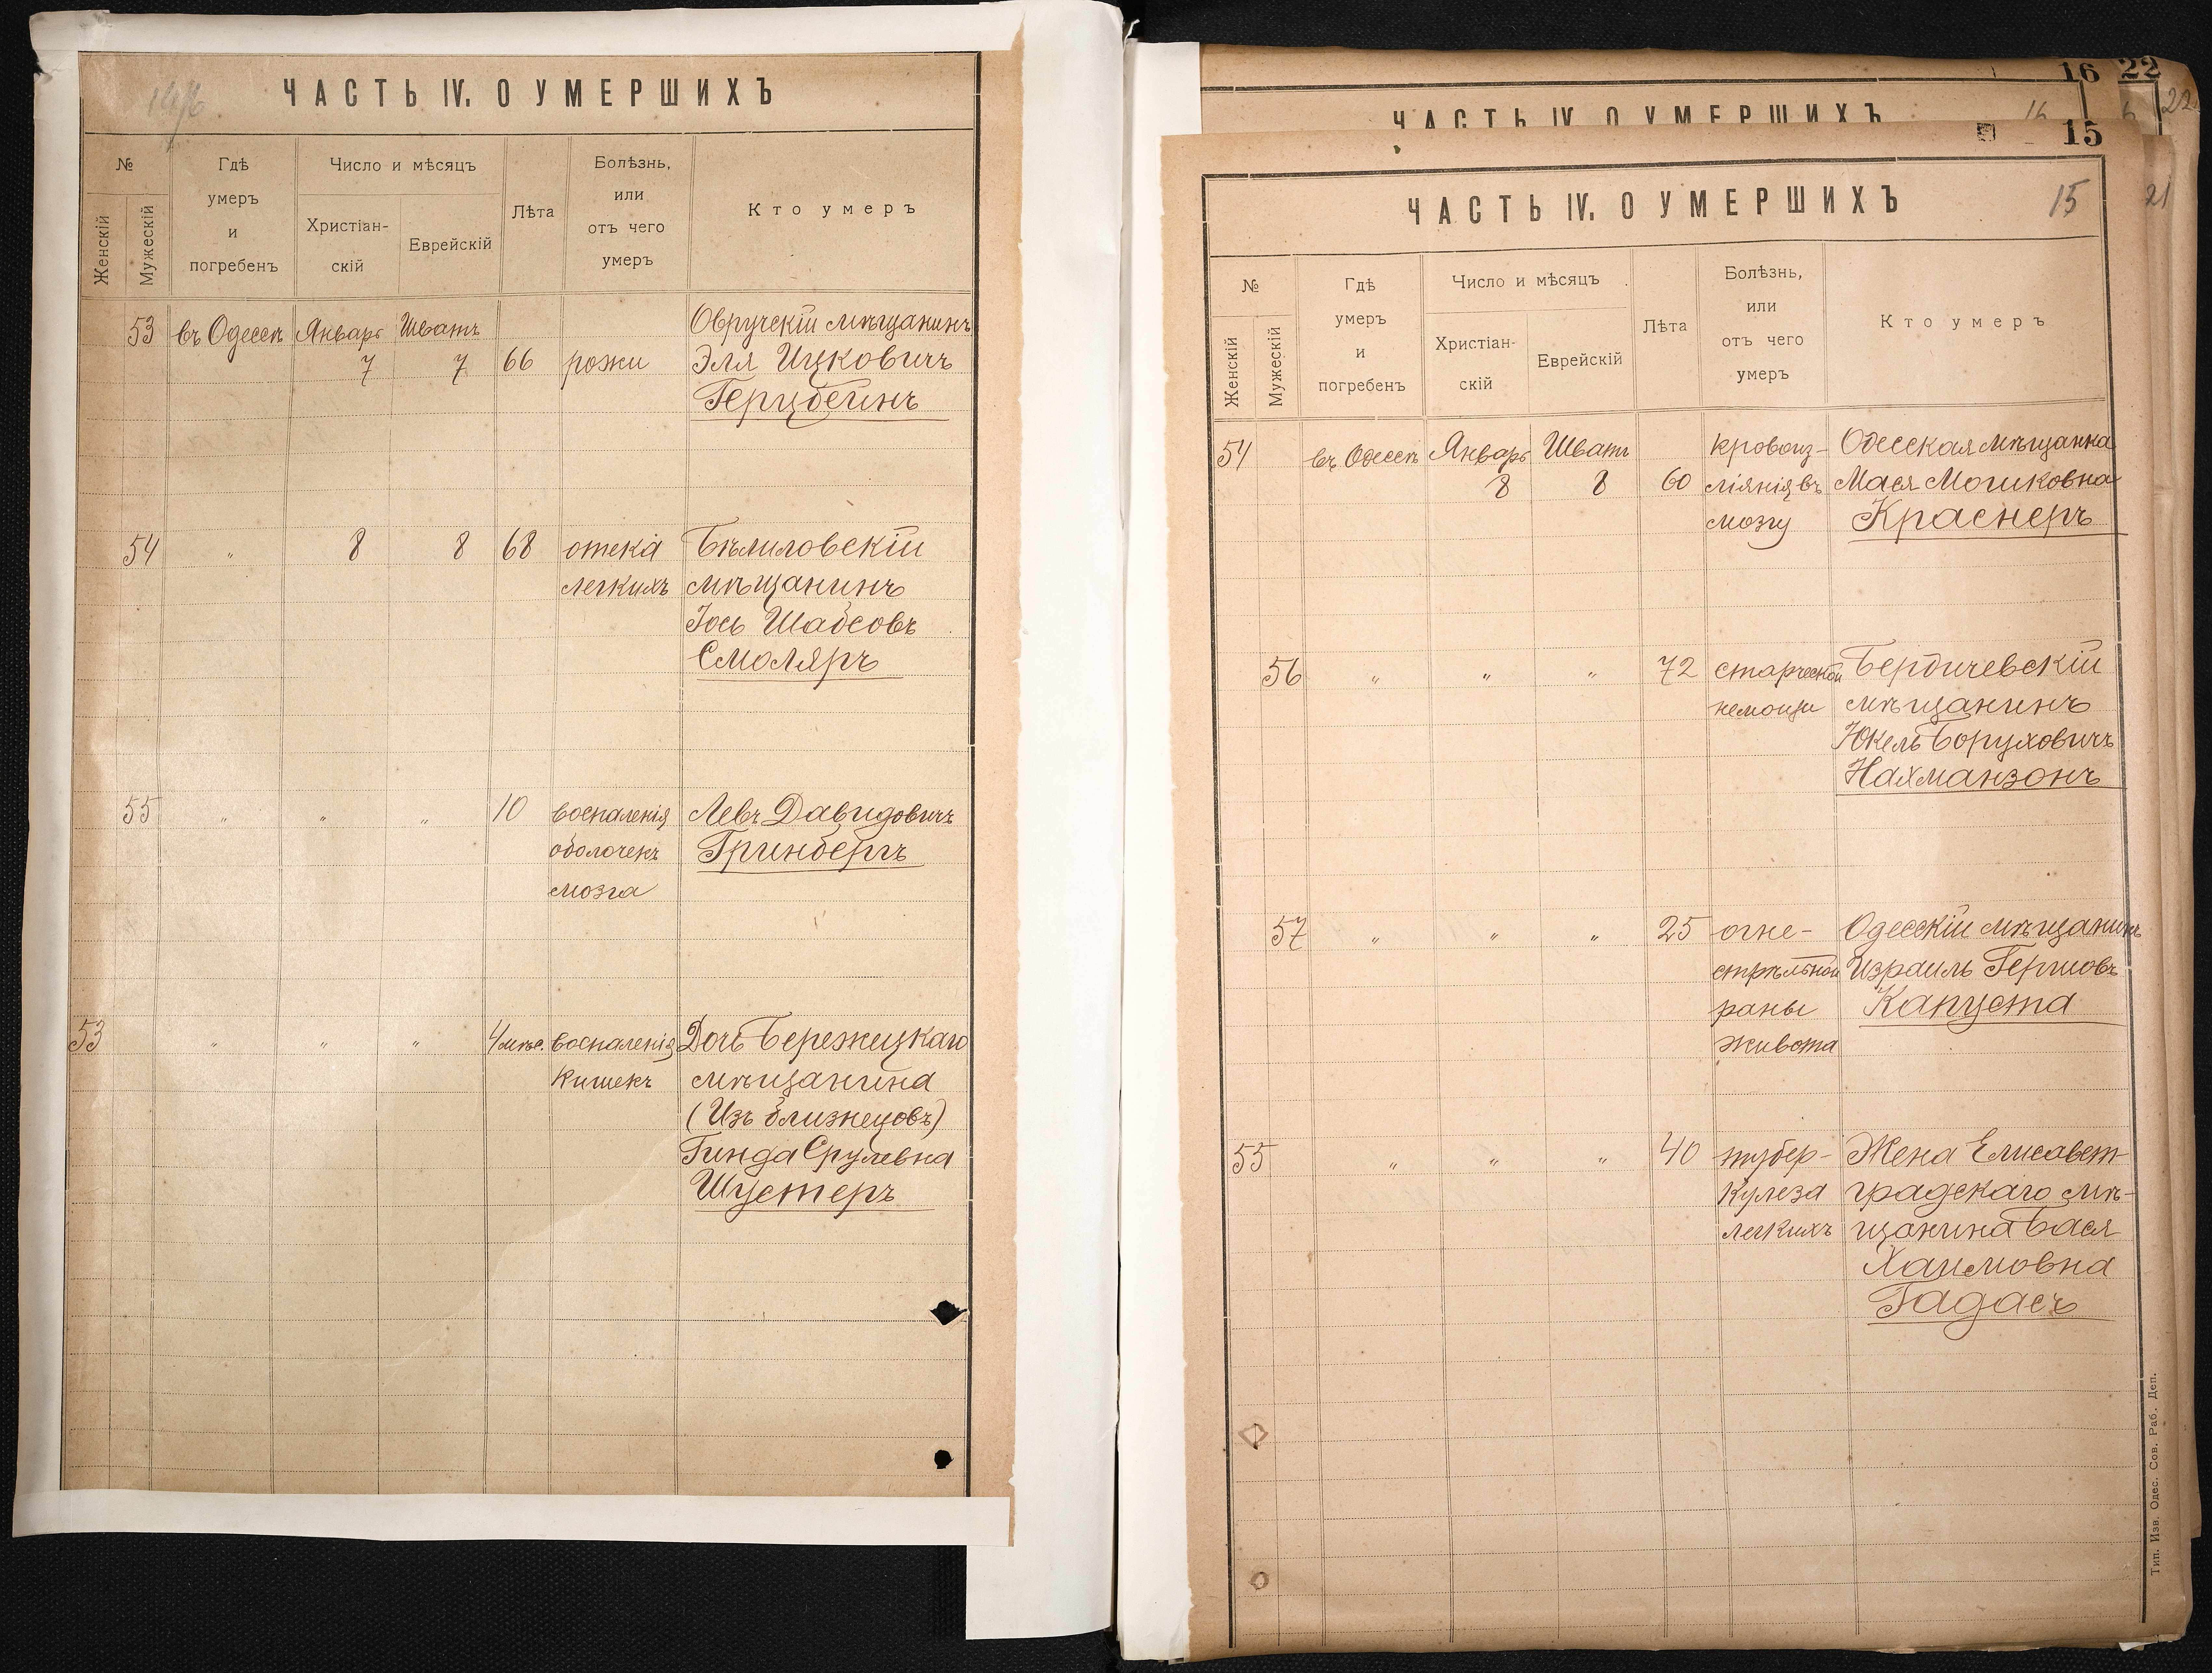 ЧАСТЬ IV. О УМЕРШИХЪ
№
Женскій
Мужескій
Гдѣ
умеръ
и
погребенъ
Число и мѣсяцъ
Христіан-
скій
Еврейскій
Лѣта
Болѣзнь,
или
отъ чего
умеръ
Кто умеръ
53 въ Одессѣ Январь Шватъ Овручскій мѣщанинъ
7 7 66 рожи Эля Ицковичъ
Герцбейнъ
54 " 8 8 68 отека Бѣлиловскій
легкихъ мѣщанинъ
Іось Шабсовъ
Смоляръ
55 " " " 10 воспаленія Левъ Давидовичъ
оболочекъ Гринбергъ
мозга
53 " " " 4 мѣс. воспаленія Дочь Бережецкаго
кишекъ мѣщанина
(Изъ близнецовъ)
Гинда Срулевна
Шустеръ
16 22
ЧАСТЬ IV. О УМЕРШИХЪ 16 22
15
ЧАСТЬ IV. О УМЕРШИХЪ 15 21
№
Женскій
Мужескій
Гдѣ
умеръ
и
погребенъ
Число и мѣсяцъ
Христіан-
скій
Еврейскій
Лѣта
Болѣзнь,
или
отъ чего
умеръ
Кто умеръ
54 въ Одессѣ Январь Шватъ кровоиз- Одесская мѣщанка
8 8 60 ліянія въ Мася Мошковна
мозгу Краснеръ
56 " " " 72 старческой Бердичевскій
немощи мѣщанинъ
Юкель Боруховичъ
Нахманзонъ
57 " " " 25 огне- Одесскій мѣщанинъ
стрѣльной Израиль Гершовъ
раны Капуста
живота
55 " " " 40 тубер- Жена Елисавет-
кулеза градскаго мѣ-
легкихъ щанина Бася
Хаимовна
Гадасъ
Тип. Изв. Одес. Сов. Раб. Деп.